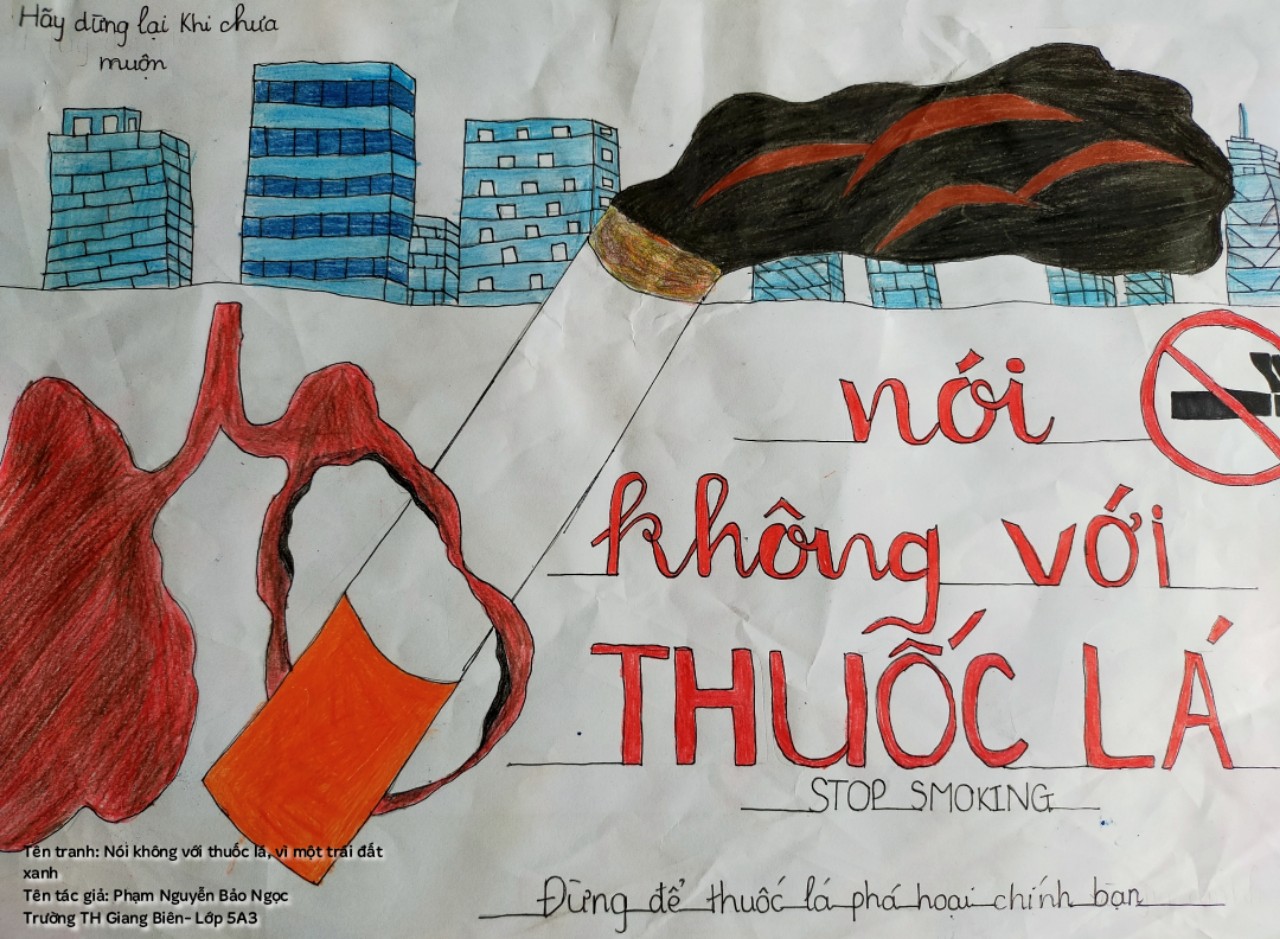 Hãy dừng lại Khi chưa
muộn
nói
không với
THUỐC LÁ
STOP SMOKING
Đừng để thuốc lá phá hoại chính bạn
Tên tranh: Nói không với thuốc lá, vì một trái đất
xanh
Tên tác giả: Phạm Nguyễn Bảo Ngọc
Trường TH Giang Biên- Lớp 5A3